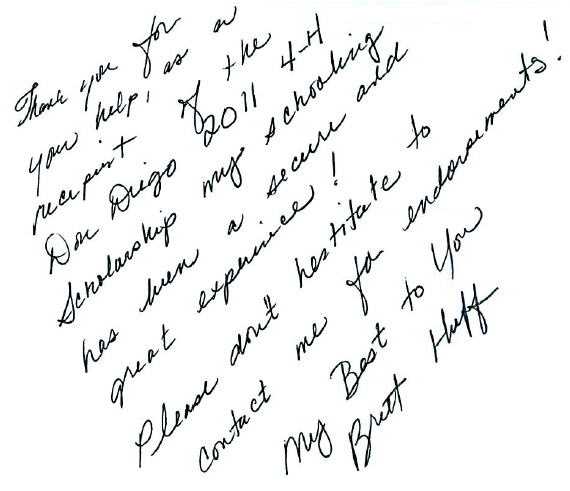 Thank you for
your help, as a
recipient of the
Don Diego 2011 4-H
Scholarship my schooling
has been a secure and
great experience!
Please don't hestitate to
contact me for endorsements!
My Best to You
Brett Huff